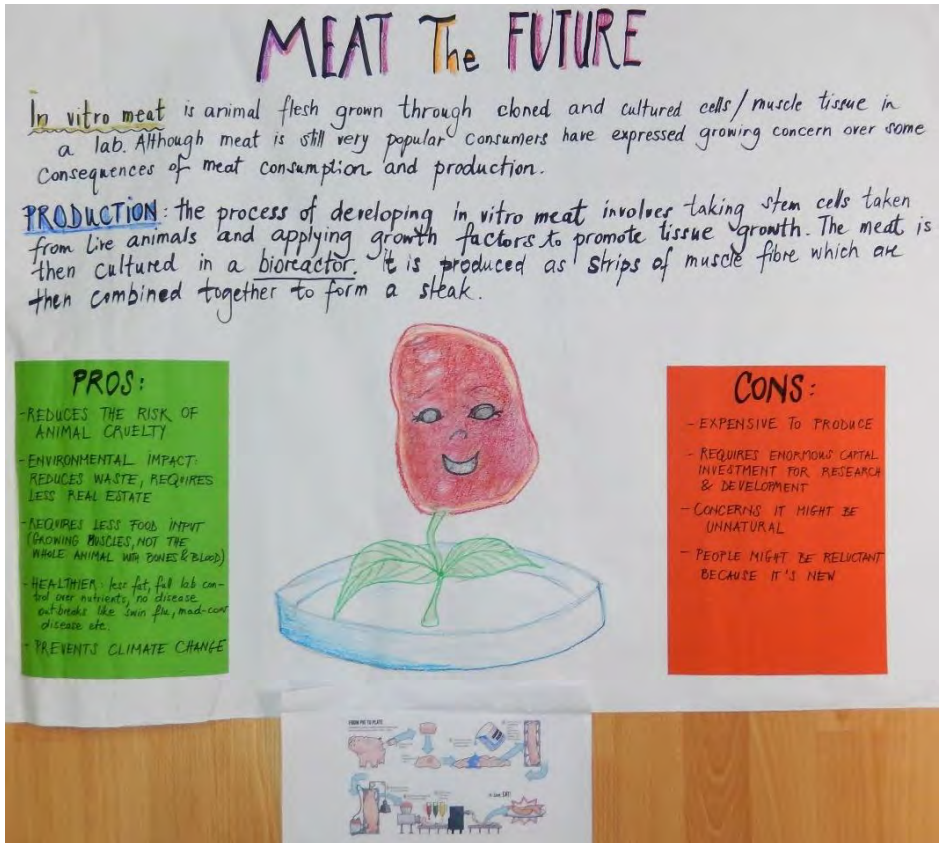 MEAT The FUTURE
In vitro meat is animal flesh grown through cloned and cultured cells/muscle tissue in
a lab. Although meat is still very popular consumers have expressed growing concern over some
consequences of meat consumption and production.
PRODUCTION: the process of developing in vitro meat involves taking stem cells taken
from live animals and applying growth factors to promote tissue growth. The meat is
then cultured in a bioreactor. It is produced as strips of muscle fibre which are
then combined together to form a steak.
PROS:
-REDUCES THE RISK OF
ANIMAL CRUELTY
-ENVIRONMENTAL IMPACT:
REDUCES WASTE, REQUIRES
LESS REAL ESTATE
-REQUIRES LESS FOOD INPUT
(GROWING MUSCLES, NOT THE
WHOLE ANIMAL WITH BONES & BLOOD)
-HEALTHIER: less fat, full lab con-
trol over nutrients, no disease
outbreaks like swin flu, mad-cow
disease etc.
-PREVENTS CLIMATE CHANGE
CONS:
- EXPENSIVE TO PRODUCE
- REQUIRES ENORMOUS CAPTAL
INVESTMENT FOR RESEARCH
& DEVELOPMENT
- CONCERNS IT MIGHT BE
UNNATURAL
- PEOPLE MIGHT BE RELUCTANT
BECAUSE IT'S NEW
FROM PIG TO PLATE
EAT!